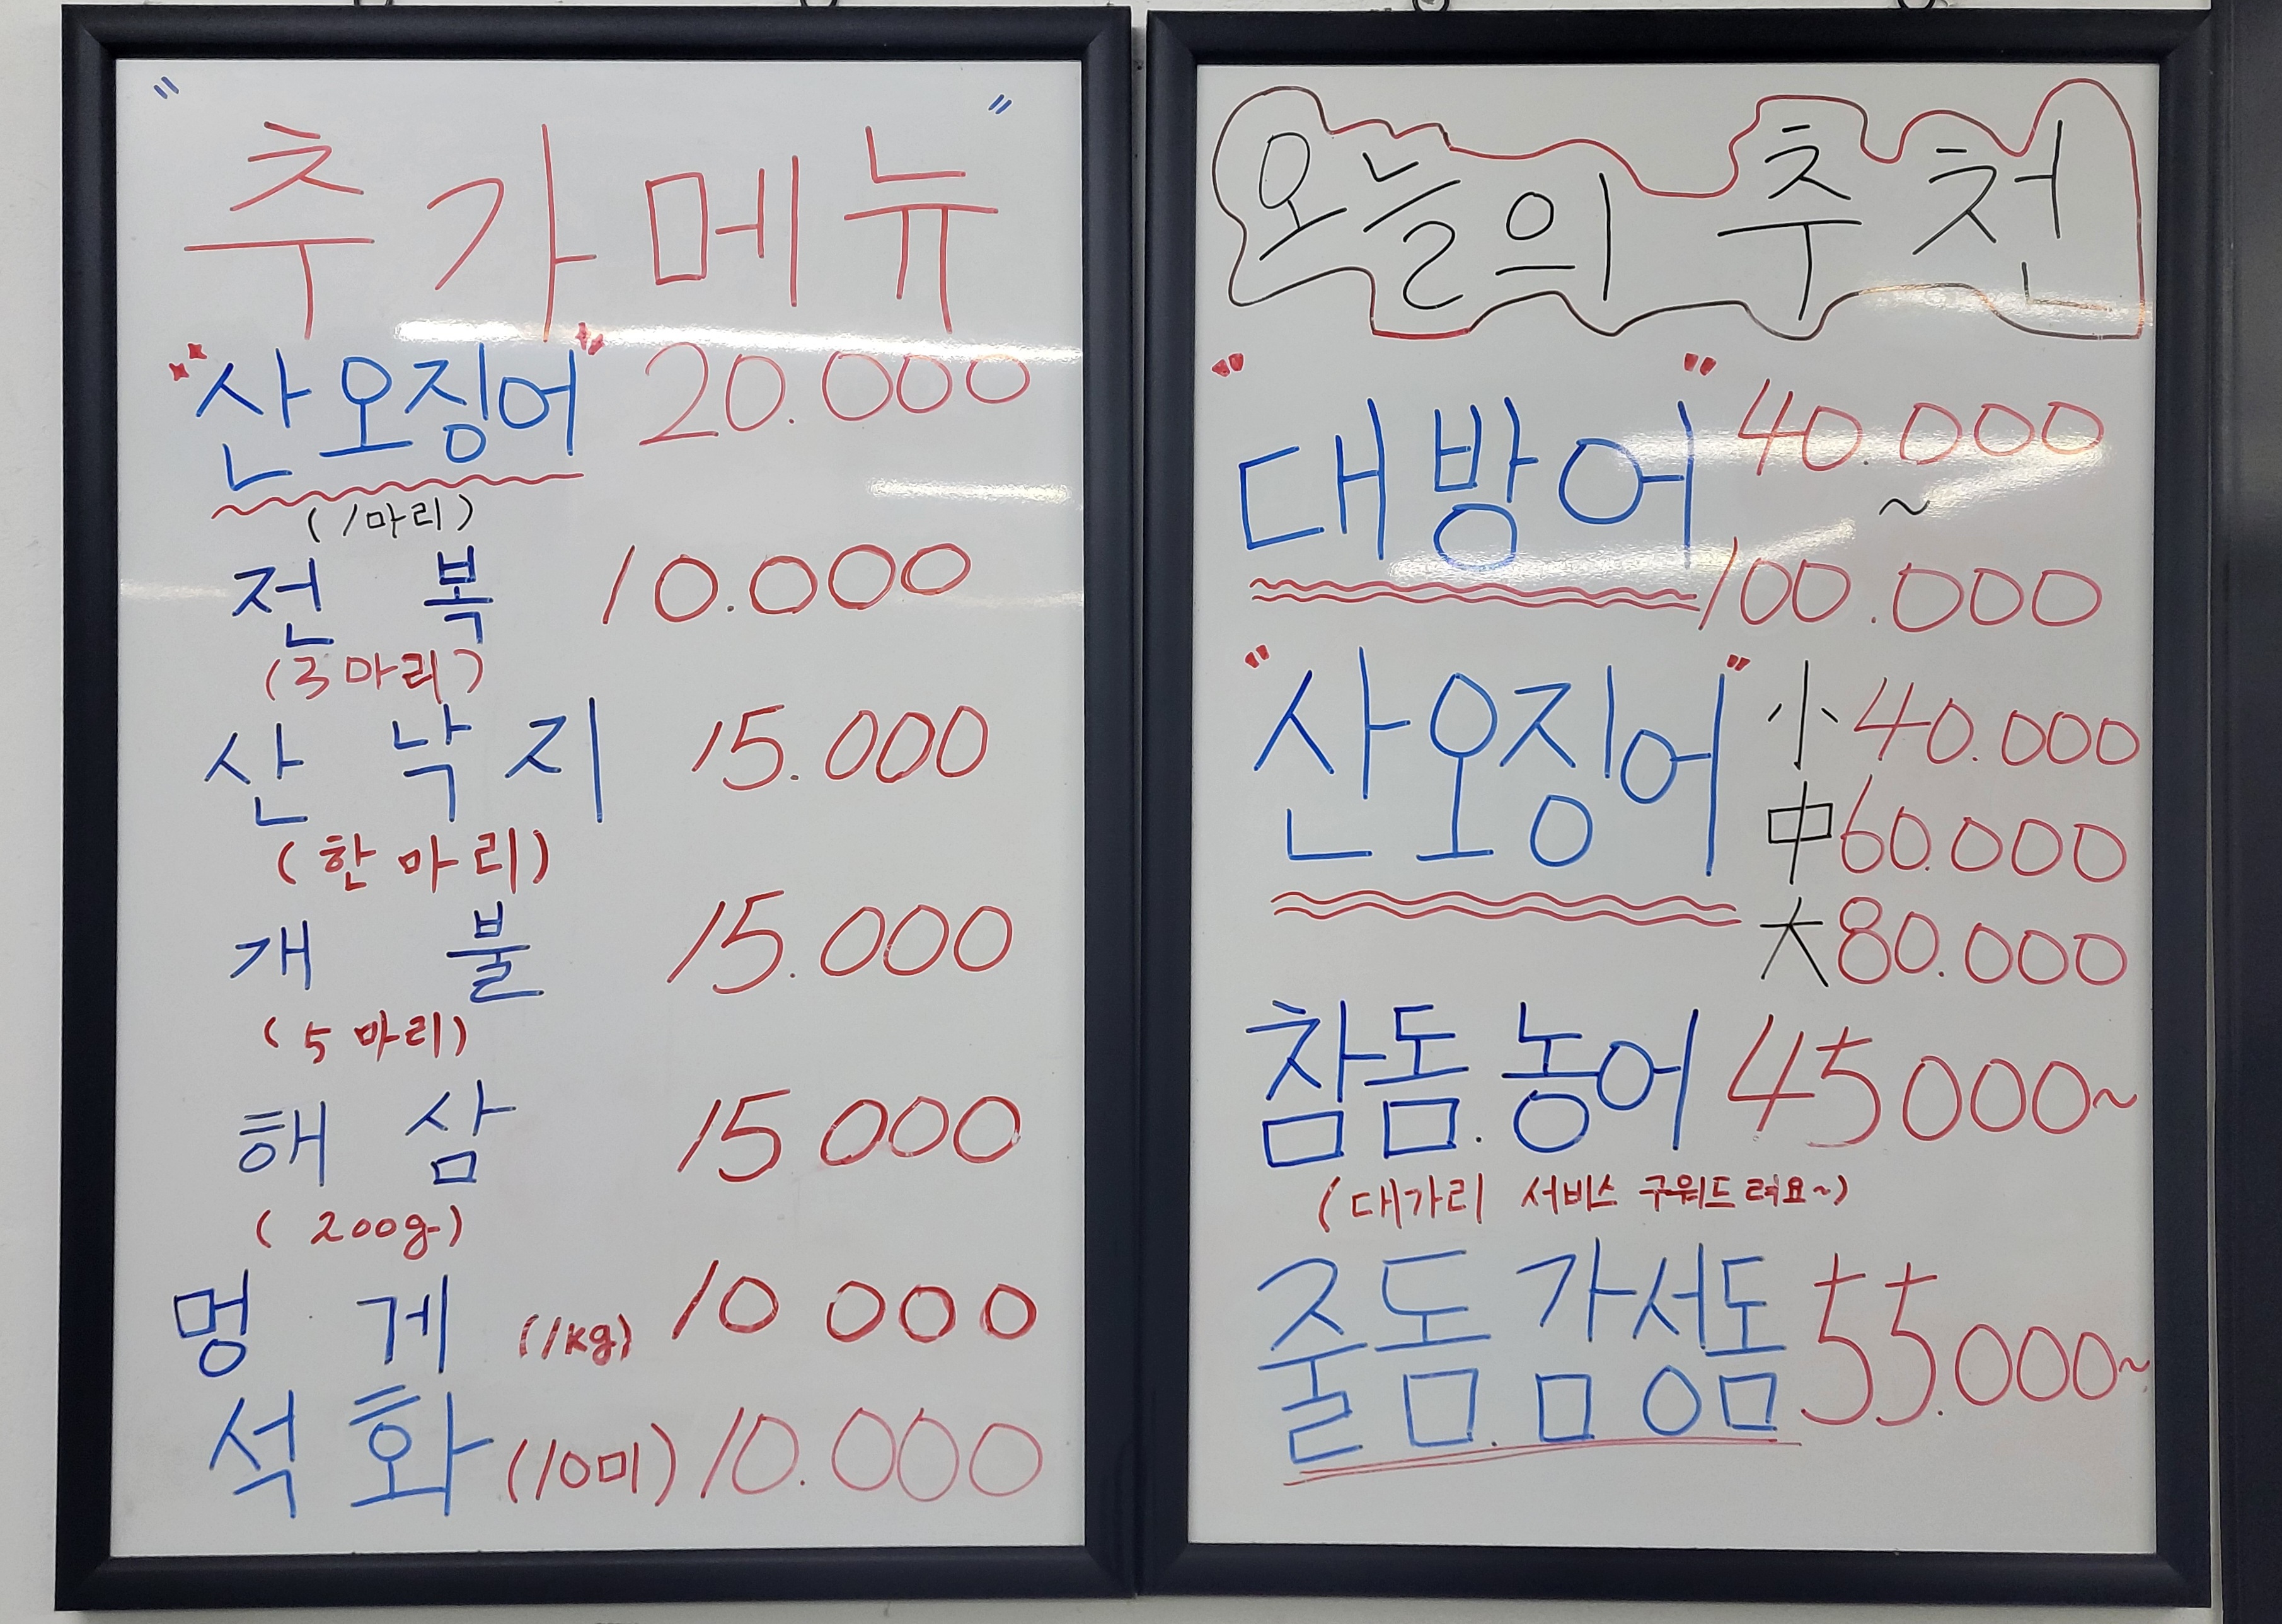 " 추가메뉴 "
"산오징어" 20.000
(1마리)
전복 10.000
(3마리)
산낙지 15.000
(한마리)
개불 15.000
(5마리)
해삼 15000
(200g)
멍게 (1kg) 10000
석화 (10미) 10.000
오늘의 추천
"대방어" 40.000
~
100.000
"산오징어" 小 40.000
中 60.000
大 80.000
참돔.농어 45000~
(대가리 서비스 구워드려요~)
줄돔.감성돔 55.000~